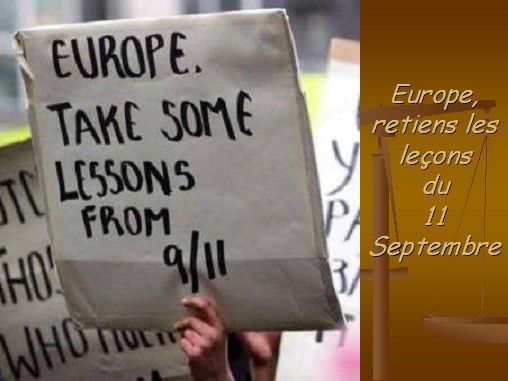 EUROPE.
TAKE SOME
LESSONS
FROM
9/11
WHO
Europe,
retiens les
leçons
du
11
Septembre